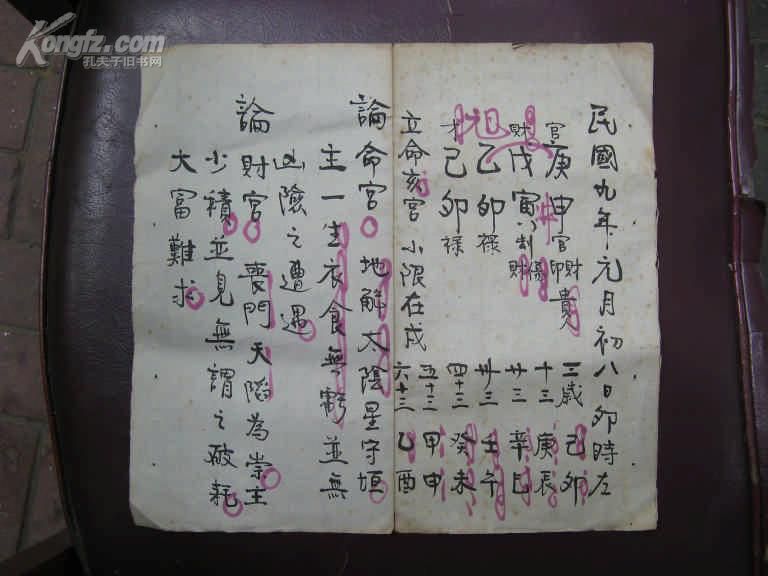 Kongfz.com
孔夫子旧书网
民國九年元月初八日卯時左
官 庚申 官印財 貴
財 戊寅 傷財
祖 乙卯 祿
才 己卯 祿
立命亥宮 小限在戌
三歲 己卯
十三 庚辰
廿三 辛巳
卅三 壬午
四十三 癸未
五十三 甲申
六十三 乙酉
論命宮 地解太陰星守垣
主一生衣食無虧並無
凶險之遭遇
論財宮 喪門天陷為祟主
少積並見無謂之破耗
大富難求